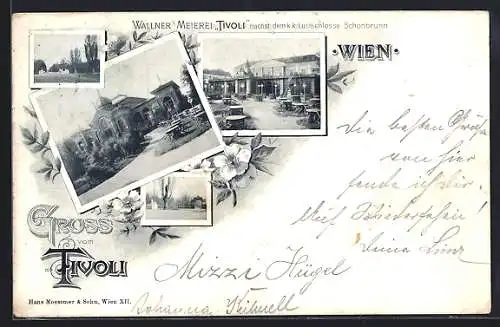 WALLNER'S MEIEREI „TIVOLI" nächst dem k.k. Lustschlosse Schönbrunn
·WIEN·
Die besten Grüße
von hier
sende ich dir.
Auf Wiedersehen!
Deine
Mizzi Hügel
Johanna
GRUSS
vom
TIVOLI
Hans Nossmer & Sohn, Wien XII.